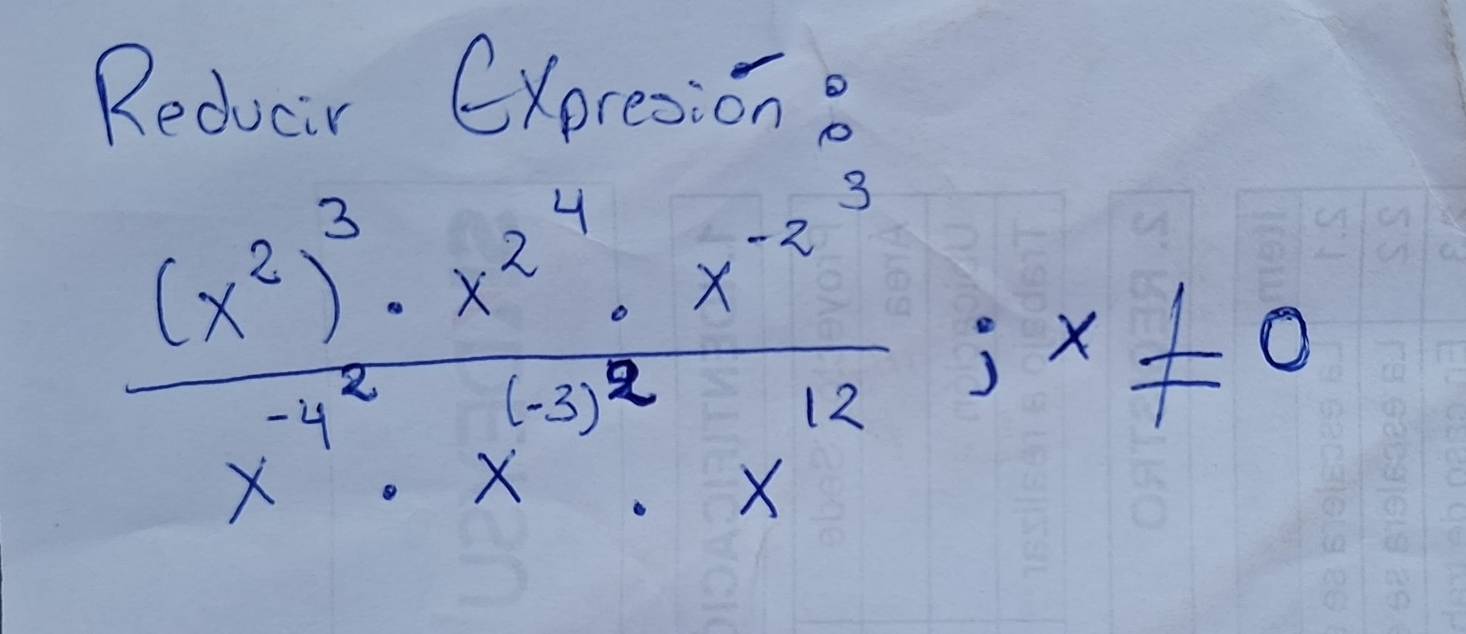 Reducir Expresión:
(x²)³ · x^2^4 · x^-2^3
───────────── ; x ≠ 0
x^-4^2 · x^(-3)^2 · x^12